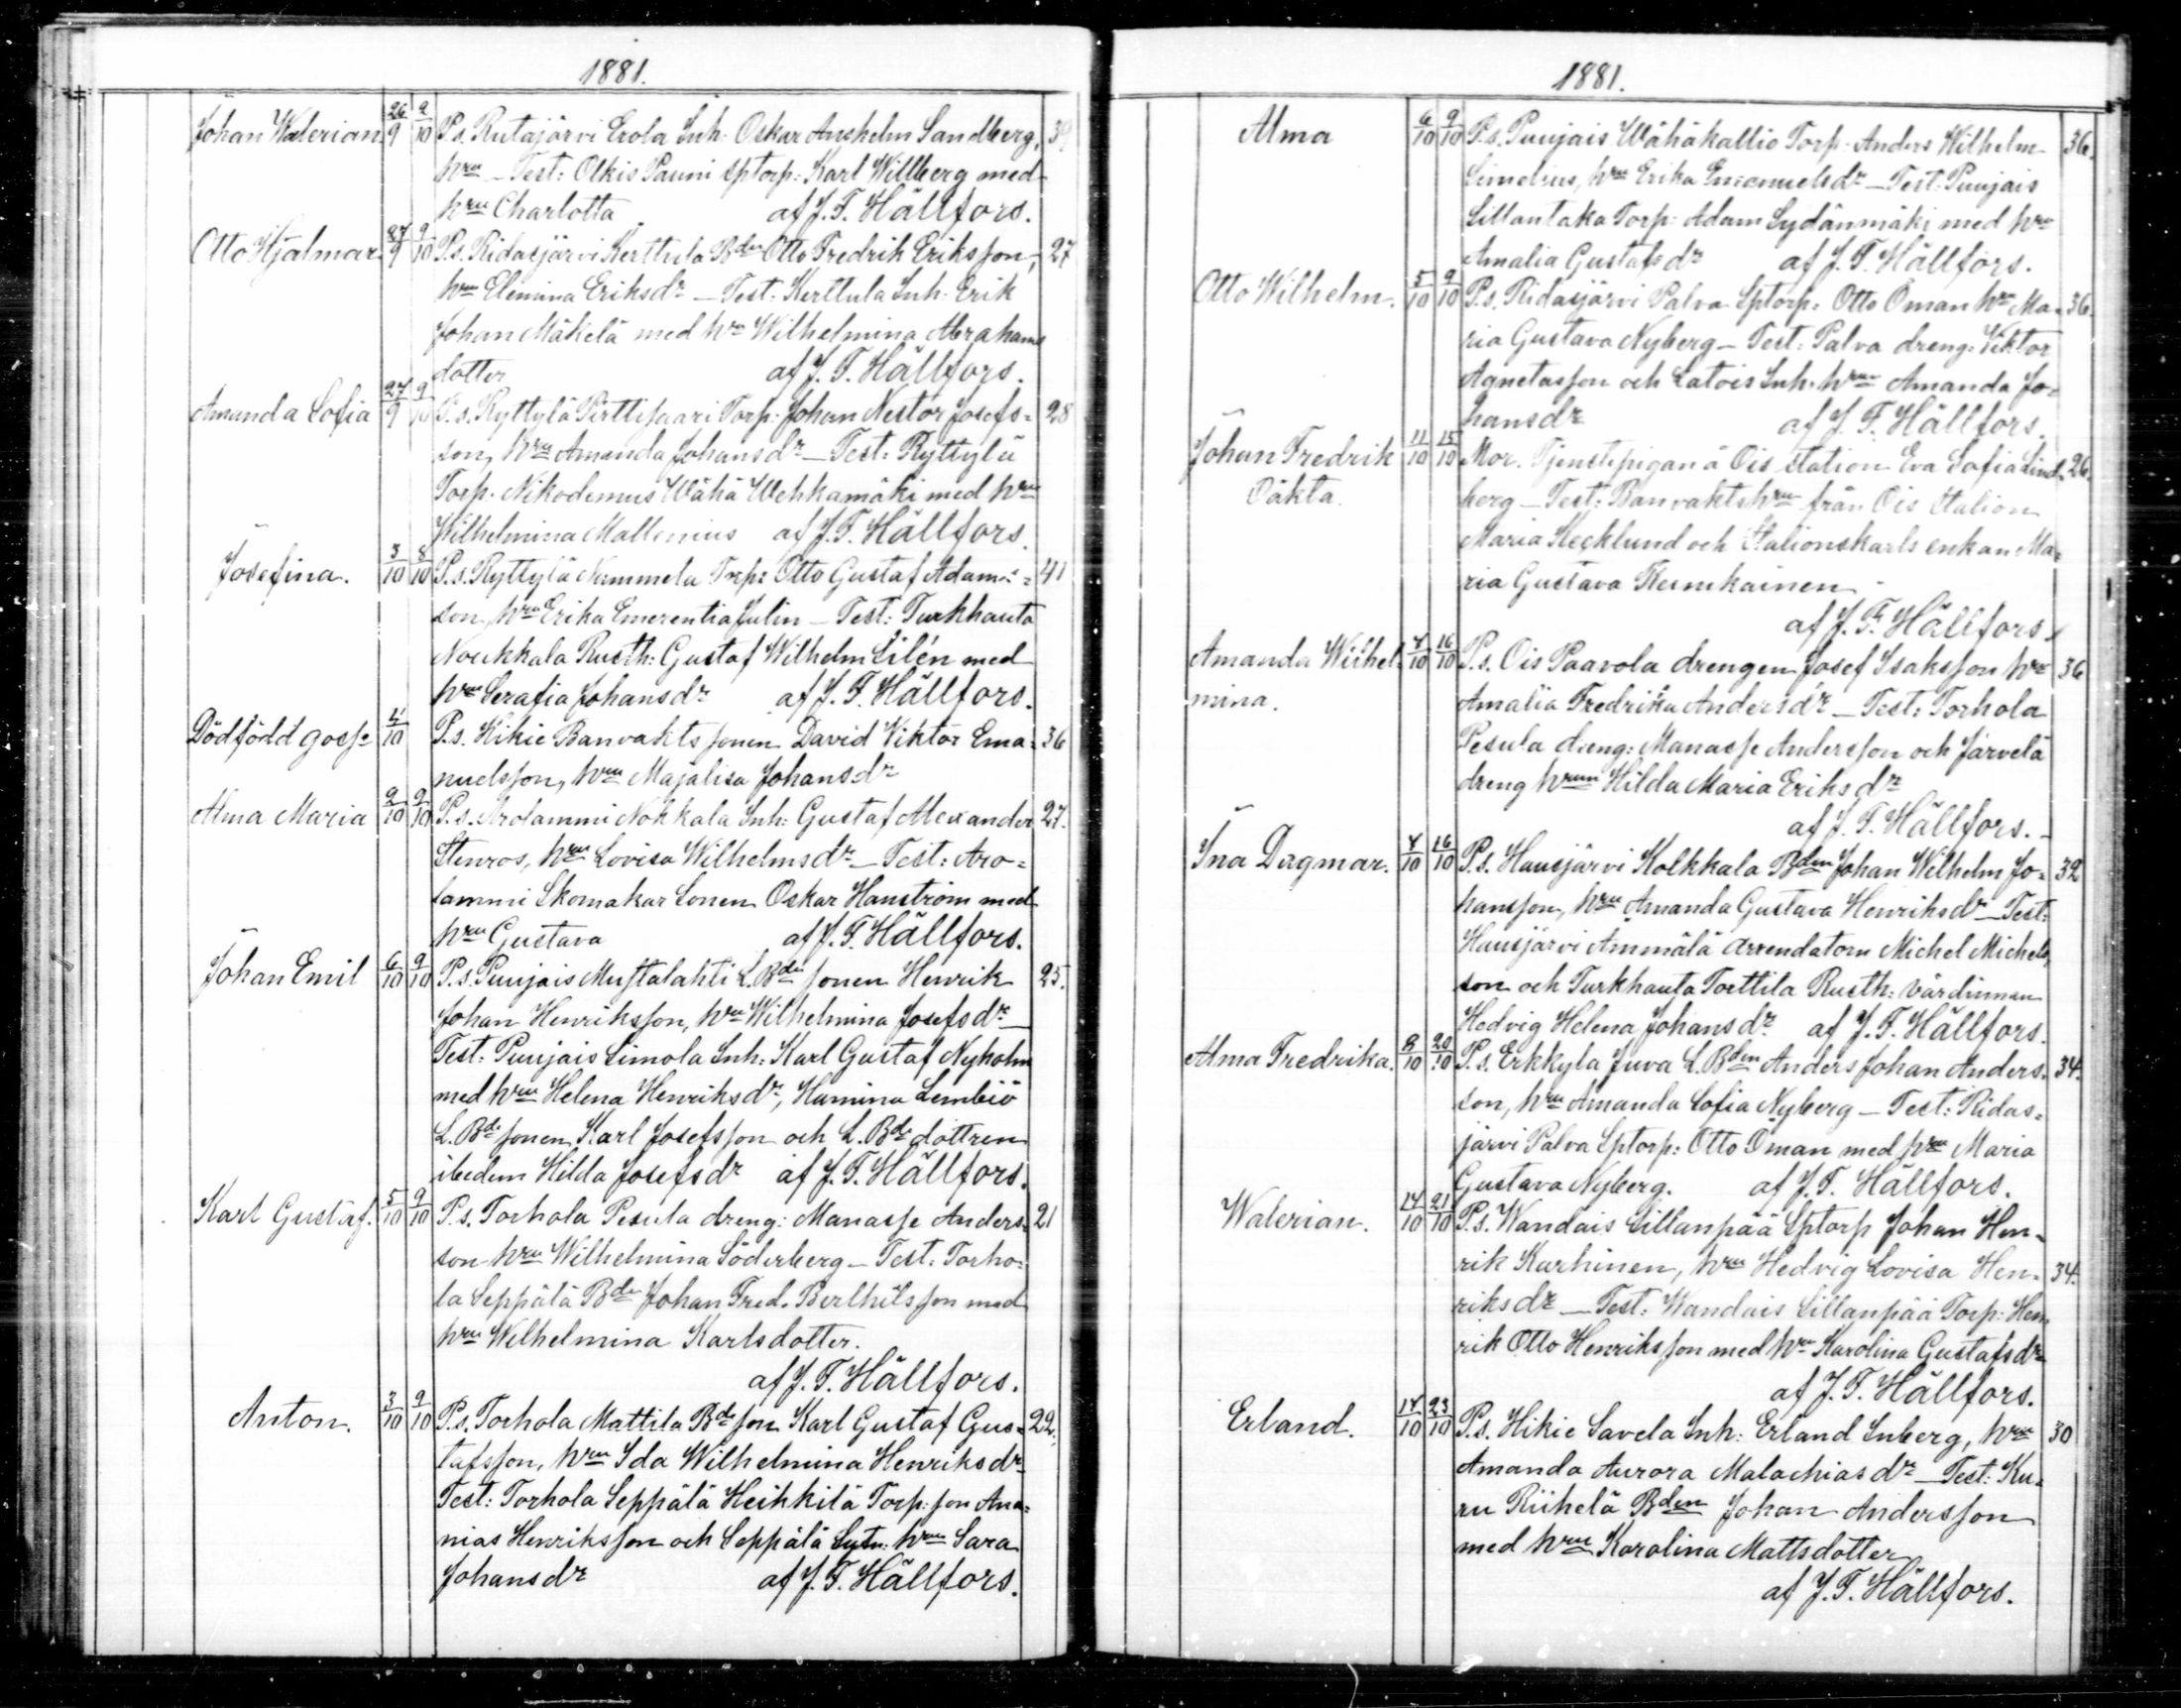 1881.
Johan Walerian 26/9 9/10 P.s. Rutajärvi Erola Inh: Oskar Anshelm Sandberg,
hru – Test: Olkis Pauni sptorp: Karl Willberg med
hru Charlotta af J. F. Hällfors.
Otto Hjalmar. 27/9 9/10 P.s. Ridasjärvi Kerttula Bdn Otto Fredrik Eriksson, 27
hru Elemina Eriksdr – Test: Kerttula Inh. Erik
Johan Mäkelä med hru Wilhelmina Abrahams
dotter af J. F. Hällfors.
Amanda Sofia 27/9 9/10 P.s. Ryttylä Pirttisaari Torp. Johan Nestor Josefs= 28
son, hru Amanda Johansdr – Test: Ryttylä
Torp. Nikodemus Wähä Wehkamäki med hru
Wilhelmina Mallenius af J. F. Hällfors.
Josefina. 3/10 8/10 P.s. Ryttylä Nummela Torp: Otto Gustaf Adams= 41
son, hru Erika Emerentia Julin – Test: Turkhauta
Noukkala Rusth: Gustaf Wilhelm Silén med
hru Serafia Johansdr af J. F. Hällfors.
Dödfödd gosse 4/10 P.s. Hikie Banvakts sonen David Viktor Ema= 36
nuelsson, hru Majalisa Johansdr
Alma Maria 2/10 9/10 P.s. Arolammi Nokkala Inh: Gustaf Alexander 27.
Stenros, hru Lovisa Wilhelmsdr – Test: Aro=
lammi Skomakar Sonen Oskar Hanström med
hru Gustava af J. F. Hällfors.
Johan Emil 6/10 9/10 P.s. Puujais Mustalahti L. Bde sonen Henrik 25.
Johan Henriksson, hru Wilhelmina Josefsdr –
Test: Puujais Simola Inh: Karl Gustaf Nyholm
med hru Helena Henriksdr, Humina Lembiö
L. Bde sonen Karl Josefsson och L. Bde dottren
ibedem Hilda Josefsdr af J. F. Hällfors.
Karl Gustaf. 5/10 9/10 P.s. Torhola Pesula dreng: Manasse Anders= 21
son hru Wilhelmina Söderberg – Test: Torho=
la Seppälä Bdn Johan Fred. Berthilsson med
hru Wilhelmina Karlsdotter.
af J. F. Hällfors.
Anton. 3/10 9/10 P.s. Torhola Mattila Bde son Karl Gustaf Gus= 22.
tafsson, hru Ida Wilhelmina Henriksdr
Test: Torhola Seppälä Heikkilä Torp: son Ana=
nias Henriksson och Seppälä Sytn: hru Sara
Johansdr af J. F. Hällfors.
1881.
Alma 6/10 9/10 P.s. Puujais Wähäkallio Torp. Anders Wilhelm 36.
Simelius, hru Erika Emanuelsdr – Test: Puujais
Sillantaka Torp: Adam Sydänmäki med hru
Amalia Gustafsdr af J. F. Hällfors.
Otto Wilhelm. 5/10 9/10 P.s. Ridasjärvi Palva Sptorp: Otto Öman hru Ma= 36.
ria Gustava Nyberg – Test: Palva dreng: Viktor
Agnetasson och Latois Inh. hru Amanda Jo=
hansdr af J. F. Hällfors.
Johan Fredrik 11/10 15/10 Mor. Tjenstepigan å Ois station Eva Sofia Lind= 26.
Oäkta. berg – Test: Banvaktshru från Ois Station
Maria Stecklund och Stationskarls enkan Ma=
ria Gustava
af J. F. Hällfors.
Amanda Wilhel= 7/10 16/10 P.s. Ois Paavola drengen Josef Isaksson hru 36
mina. Amalia Fredrika Andersdr – Test: Torhola
Pesula dreng: Manasse Andersson och Järvelä
dreng hrun Hilda Maria Eriksdr
af J. F. Hällfors. –
Ina Dagmar. 7/10 16/10 P.s. Hausjärvi Kolkkala Bden Johan Wilhelm Jo= 32
hansson, hru Amanda Gustava Henriksdr – Test:
Hausjärvi Ammälä arrendatorn Michel Michels,
son och Turkhauta Torttila Rusth: värdinnan
Hedvig Helena Johansdr af J. F. Hällfors.
Alma Fredrika. 8/10 20/10 P.s. Erkkylä Juva L. Bden Anders Johan Anders= 34.
son, hru Amanda Sofia Nyberg – Test: Ridas=
järvi Palva Sptorp: Otto Öman med hru Maria
Gustava Nyberg. af J. F. Hällfors.
Walerian. 14/10 21/10 P.s. Wandais Sillanpää Sptorp Johan Hen=
rik Karhinen, hru Hedvig Lovisa Hen= 34.
riksdr – Test: Wandais Sillanpää Torp: Hen
rik Otto Henriksson med hru Karolina Gustafsdr
af J. F. Hällfors.
Erland. 17/10 23/10 P.s. Hikie Savela Inh: Erland Inberg, hru 30
Amanda Aurora Malachiasdr – Test: Ku=
ru Riihelä Bden Johan Andersson
med hru Karolina Mattsdotter
af J. F. Hällfors.